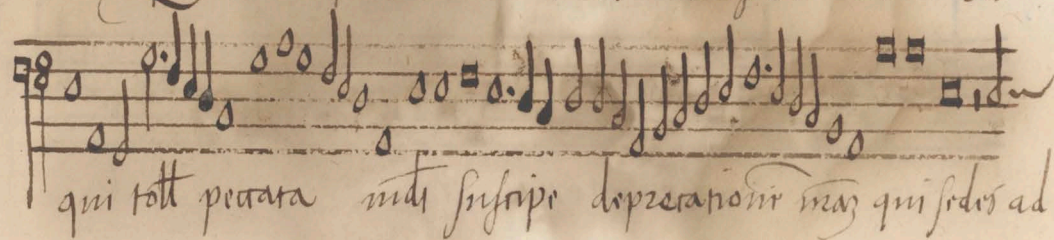 qui toll peccata mdi suscipe deprecationē nr̄aʒ qui sedes ad